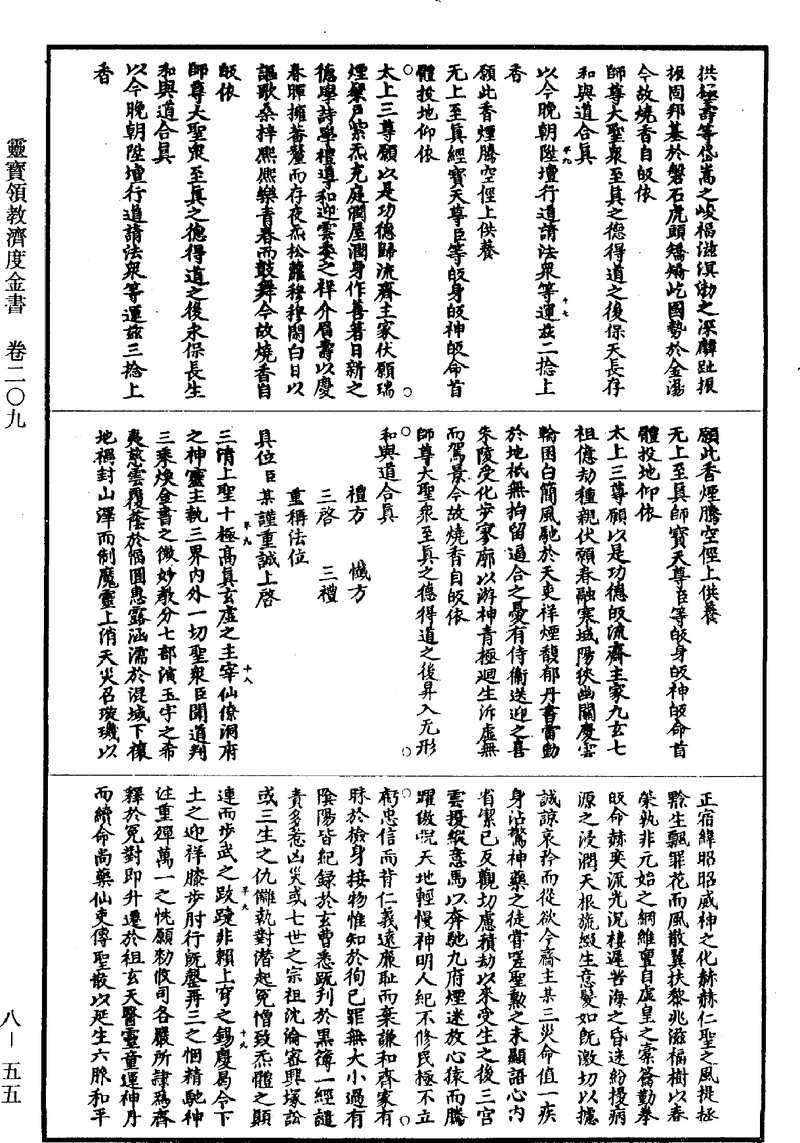 靈寶領教濟度金書 卷二〇九
拱極壽等岱嵩之峻福滋溟渤之深麟趾振
振固邦基於磐石虎頭矯矯屹國勢於金湯
今故燒香自皈依
師尊大聖衆至真之德得道之後保天長存
和與道合真
以今晚朝陞壇行道請法衆等運茲二捻上
香
願此香煙騰空徑上供養
无上至真經寶天尊臣等皈身皈神皈命首
體投地仰依
太上三尊願以是功德歸流齋主家伏願瑞
煙縈戶紫炁充庭潤屋潤身作善著日新之
德學詩學禮導和迎雲委之祥介眉壽以慶
春暉擁蕃釐而存夜炁松蘿穆穆閱白日以
謳歌桑梓熙熙樂青春而鼓舞今故燒香自
皈依
師尊大聖衆至真之德得道之後永保長生
和與道合真
以今晚朝陞壇行道請法衆等運茲三捻上
香
願此香煙騰空徑上供養
无上至真師寶天尊臣等皈身皈神皈命首
體投地仰依
太上三尊願以是功德皈流齋主家九玄七
祖億劫種親伏願春融寒域陽狹幽關慶雲
輪囷白簡風馳於天吏祥煙馥郁丹書雷動
於地祇無拘留遏合之憂有侍衛送迎之喜
朱陵受化步寥廓以游神青極迴生泝虛無
而駕景今故燒香自皈依
師尊大聖衆至真之德得道之後昇入无形
和與道合真
禮方 懺方
三啓 三禮
重稱法位
具位臣某謹重誠上啓
三清上聖十極高真玄虛之主宰仙僚洞府
之神靈主執三界內外一切聖衆臣聞道判
三乘煥金書之微妙教分七部演玉字之希
夷慈雲覆蔭於幅圓惠露涵濡於混域下禳
地禍封山澤而制魔靈上消天災召璇璣以
正宿緯昭昭威神之化赫赫仁聖之風提拯
黔生飄罪花而風散翼扶黎兆滋福樹以春
榮孰非元始之綱維亶自虛皇之橐籥勤拳
皈命赫奕流光況棲遲苦海之昏迷紛擾病
源之浸潤天根旒綴生意髮如旣激切以攄
誠諒哀矜而從欲今齋主某三災命值一疾
身沾驚神藥之徒嘗嗟聖勳之未顯語心內
省潔己反觀切慮積劫以來受生之後三宮
雲擾縱意馬以奔馳九府煙迷放心猿而騰
躍傲睨天地輕慢神明人紀不修民極不立
虧忠信而背仁義遠廉恥而棄謙和齊家有
昧於檢身接物惟知於徇己罪無大小過有
陰陽皆紀錄於玄曹悉疏列於黑簿一經譴
責多惹凶災或七世之宗祖沈淪密興塚訟
或三生之仇讎執對潛起冤憎致炁體之顛
連而步武之跛躄非賴上穹之錫慶曷令下
土之迎祥膝步肘行旣罄再三之悃精馳神
往重殫萬一之忱願勑攸司各嚴所隸爲齊
釋於冤對即升遷於祖玄天醫靈童運神丹
而續命尚藥仙吏傳聖散以延生六脈和平
平九 十七
平九 十八
平九 十九
八—五五